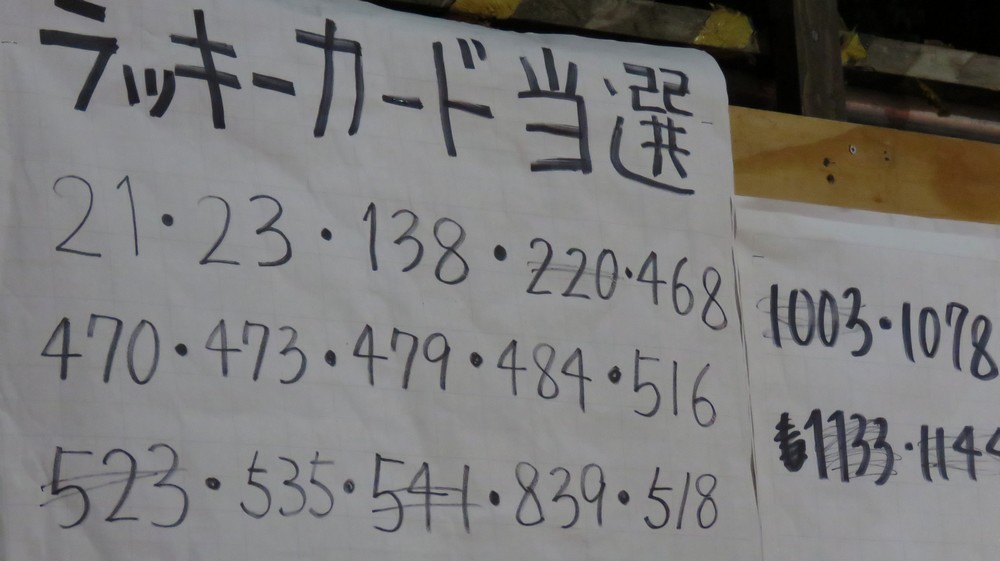 ラッキーカード当選
21・23・138・220・468
470・473・479・484・516
523・535・541・839・518
1003・1078
1133・1144